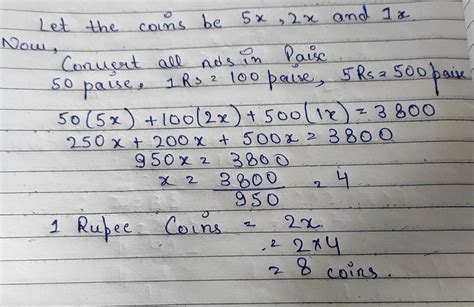 Let the coins be 5x, 2x and 1x
Now,
Convert all nds in Paise
50 paise, 1 Rs = 100 paise, 5Rs = 500 paise
50(5x) + 100(2x) + 500(1x) = 3800
250x + 200x + 500x = 3800
950x = 3800
x = 3800 = 4
950
1 Rupee Coins = 2x
= 2×4
= 8 coins.